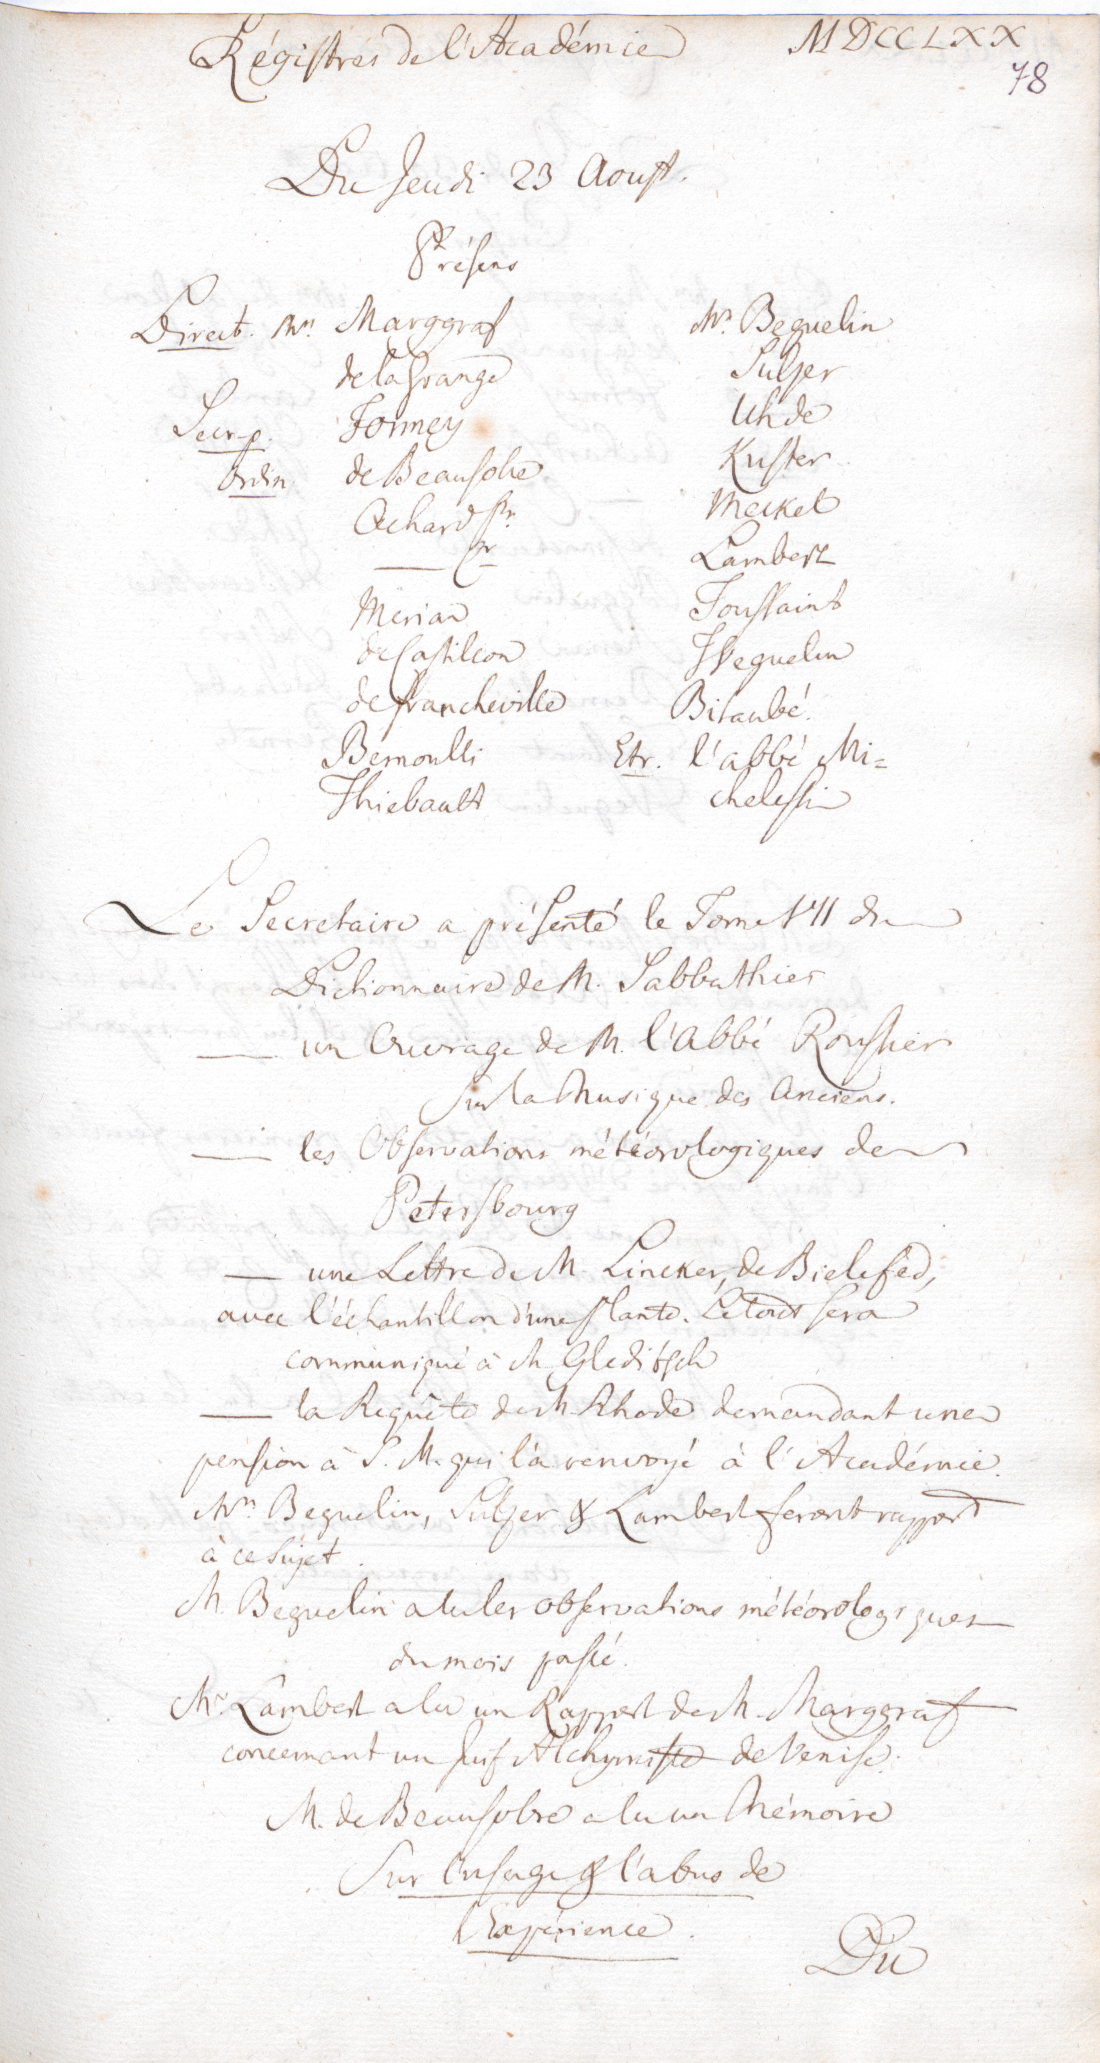 Régistres de l'Académie MDCCLXX
78
Du Jeudi 23 Aoust.
Présens
Direct. Mrs. Marggraf
de la Grange
Secr. p. Formey
Ordin de Beausobre
Achard Sr.
— Jr
Merian
de Castillon
de Francheville
Bernoulli
Thiebault
Mrs Beguelin
Sulzer
Uhde
Kuster
Meckel
Lambert
Toussaint
Weguelin
Bitaubé.
Etr. l'abbé Mi=
chelessi
Le Secretaire a présenté le Tome VII du
Dictionnaire de M. Sabbathier
— un Ouvrage de M. l'Abbé Roussier
sur la Musique des Anciens.
— les Observations météorologiques de
Petersbourg
— une Lettre de M. Lincker, de Bielefed,
avec l'échantillon d'une plante. Le tout sera
communiqué à M Gleditsch
— la Requête de M Rhode demandant une
pension à S. M. qui l'a renvoyé à l'Académie.
Mrs Beguelin, Sulzer & Lambert feront rapport
à ce sujet.
M. Beguelin a lu les observations météorologiques
du mois passé.
Mr. Lambert a lu un Rapport de M. Marggraf
concernant un Juif Alchymiste de Venise.
M. de Beausobre a lu un Mémoire
Sur l'usage & l'abus de
l'Expérience.
Du